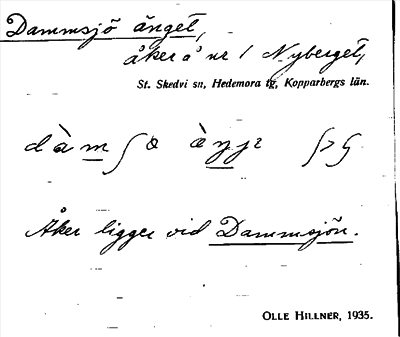 Dammsjö änget,
åker å nr 1 Nyberget,
St. Skedvi sn, Hedemora tg, Kopparbergs län.
Åker ligger vid Dammsjön.
OLLE HILLNER, 1935.